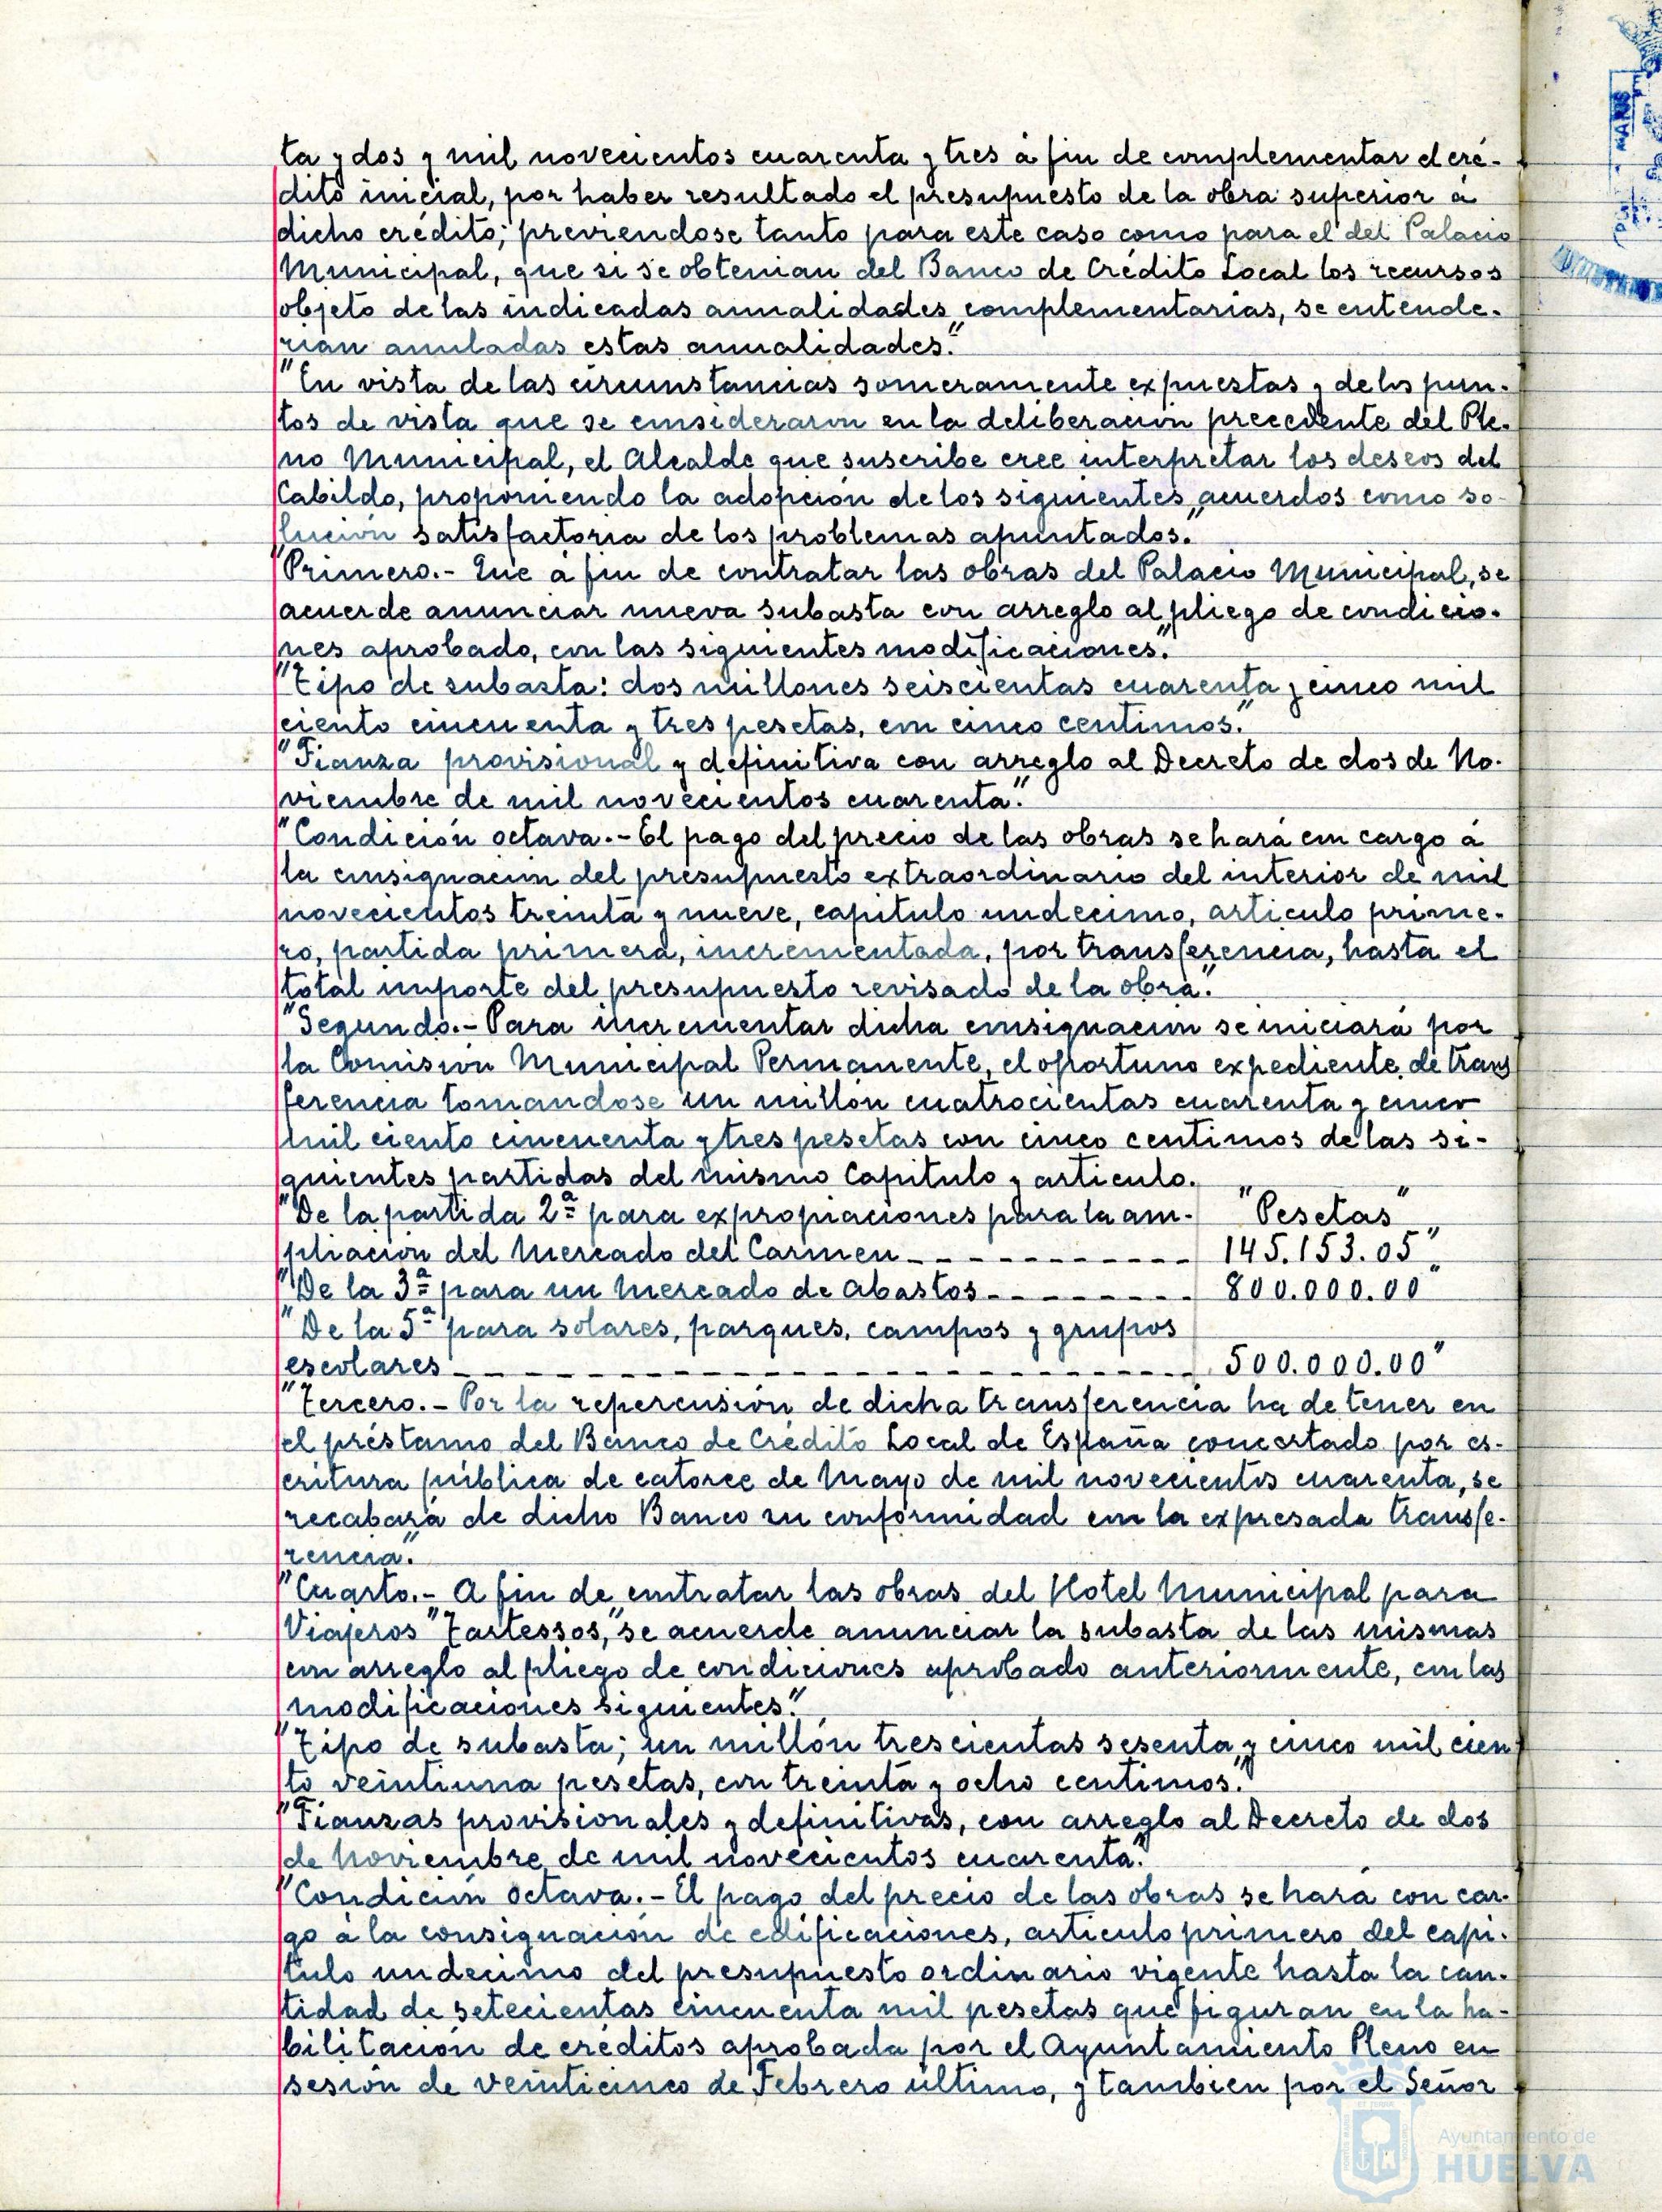 ta y dos y mil novecientos cuarenta y tres á fin de complementar el cré-
dito inicial, por haber resultado el presupuesto de la obra superior á
dicho crédito; previendose tanto para este caso como para el del Palacio
Municipal, que si se obtenian del Banco de Crédito Local los recursos
objeto de las indicadas anualidades complementarias, se entende-
rian anuladas estas anualidades."
"En vista de las circunstancias someramente expuestas y de los pun-
tos de vista que se consideraron en la deliberación precedente del Ple-
no Municipal, el Alcalde que suscribe cree interpretar los deseos del
Cabildo, proponiendo la adopción de los siguientes acuerdos como so-
lución satisfactoria de los problemas apuntados."
"Primero.- Que á fin de contratar las obras del Palacio Municipal, se
acuerde anunciar nueva subasta con arreglo al pliego de condicio-
nes aprobado, con las siguientes modificaciones."
"Tipo de subasta: dos millones seiscientas cuarenta y cinco mil
ciento cincuenta y tres pesetas, con cinco centimos."
"Fianza provisional y definitiva con arreglo al Decreto de dos de No-
viembre de mil novecientos cuarenta."
"Condición octava.- El pago del precio de las obras se hará con cargo á
la consignación del presupuesto extraordinario del interior de mil
novecientos treinta y nueve, capitulo undecimo, articulo prime-
ro, partida primera, incrementada, por transferencia, hasta el
total importe del presupuesto revisado de la obra."
"Segundo.- Para incrementar dicha consignación se iniciará por
la Comisión Municipal Permanente, el oportuno expediente de trans
ferencia tomandose un millón cuatrocientas cuarenta y cinco
mil ciento cincuenta y tres pesetas con cinco centimos de las si-
guientes partidas del mismo Capitulo y articulo.
"De la partida 2ª para expropiaciones para la am- "Pesetas"
pliación del Mercado del Carmen ----------- 145.153.05"
"De la 3ª para un Mercado de Abastos -------- 800.000.00"
"De la 5ª para solares, parques, campos y grupos
escolares ----------------------- 500.000.00"
"Tercero.- Por la repercusión de dicha transferencia ha de tener en
el préstamo del Banco de Crédito Local de España concertado por es-
critura pública de catorce de Mayo de mil novecientos cuarenta, se
recabará de dicho Banco su conformidad con la expresada transfe-
rencia."
"Cuarto.- A fin de contratar las obras del Hotel Municipal para
Viajeros "Tartessos," se acuerde anunciar la subasta de las mismas
con arreglo al pliego de condiciones aprobado anteriormente, con las
modificaciones siguientes."
"Tipo de subasta; un millón trescientas sesenta y cinco mil cien
to veintiuna pesetas, con treinta y ocho centimos."
"Fianzas provisionales y definitivas, con arreglo al Decreto de dos
de Noviembre de mil novecientos cuarenta."
"Condición octava.- El pago del precio de las obras se hará con car-
go á la consignación de edificaciones, articulo primero del capi-
tulo undecimo del presupuesto ordinario vigente hasta la can-
tidad de setecientas cincuenta mil pesetas que figuran en la ha-
bilitación de créditos aprobada por el Ayuntamiento Pleno en
sesión de veinticinco de Febrero último, y tambien por el Señor
Ayuntamiento de
HUELVA